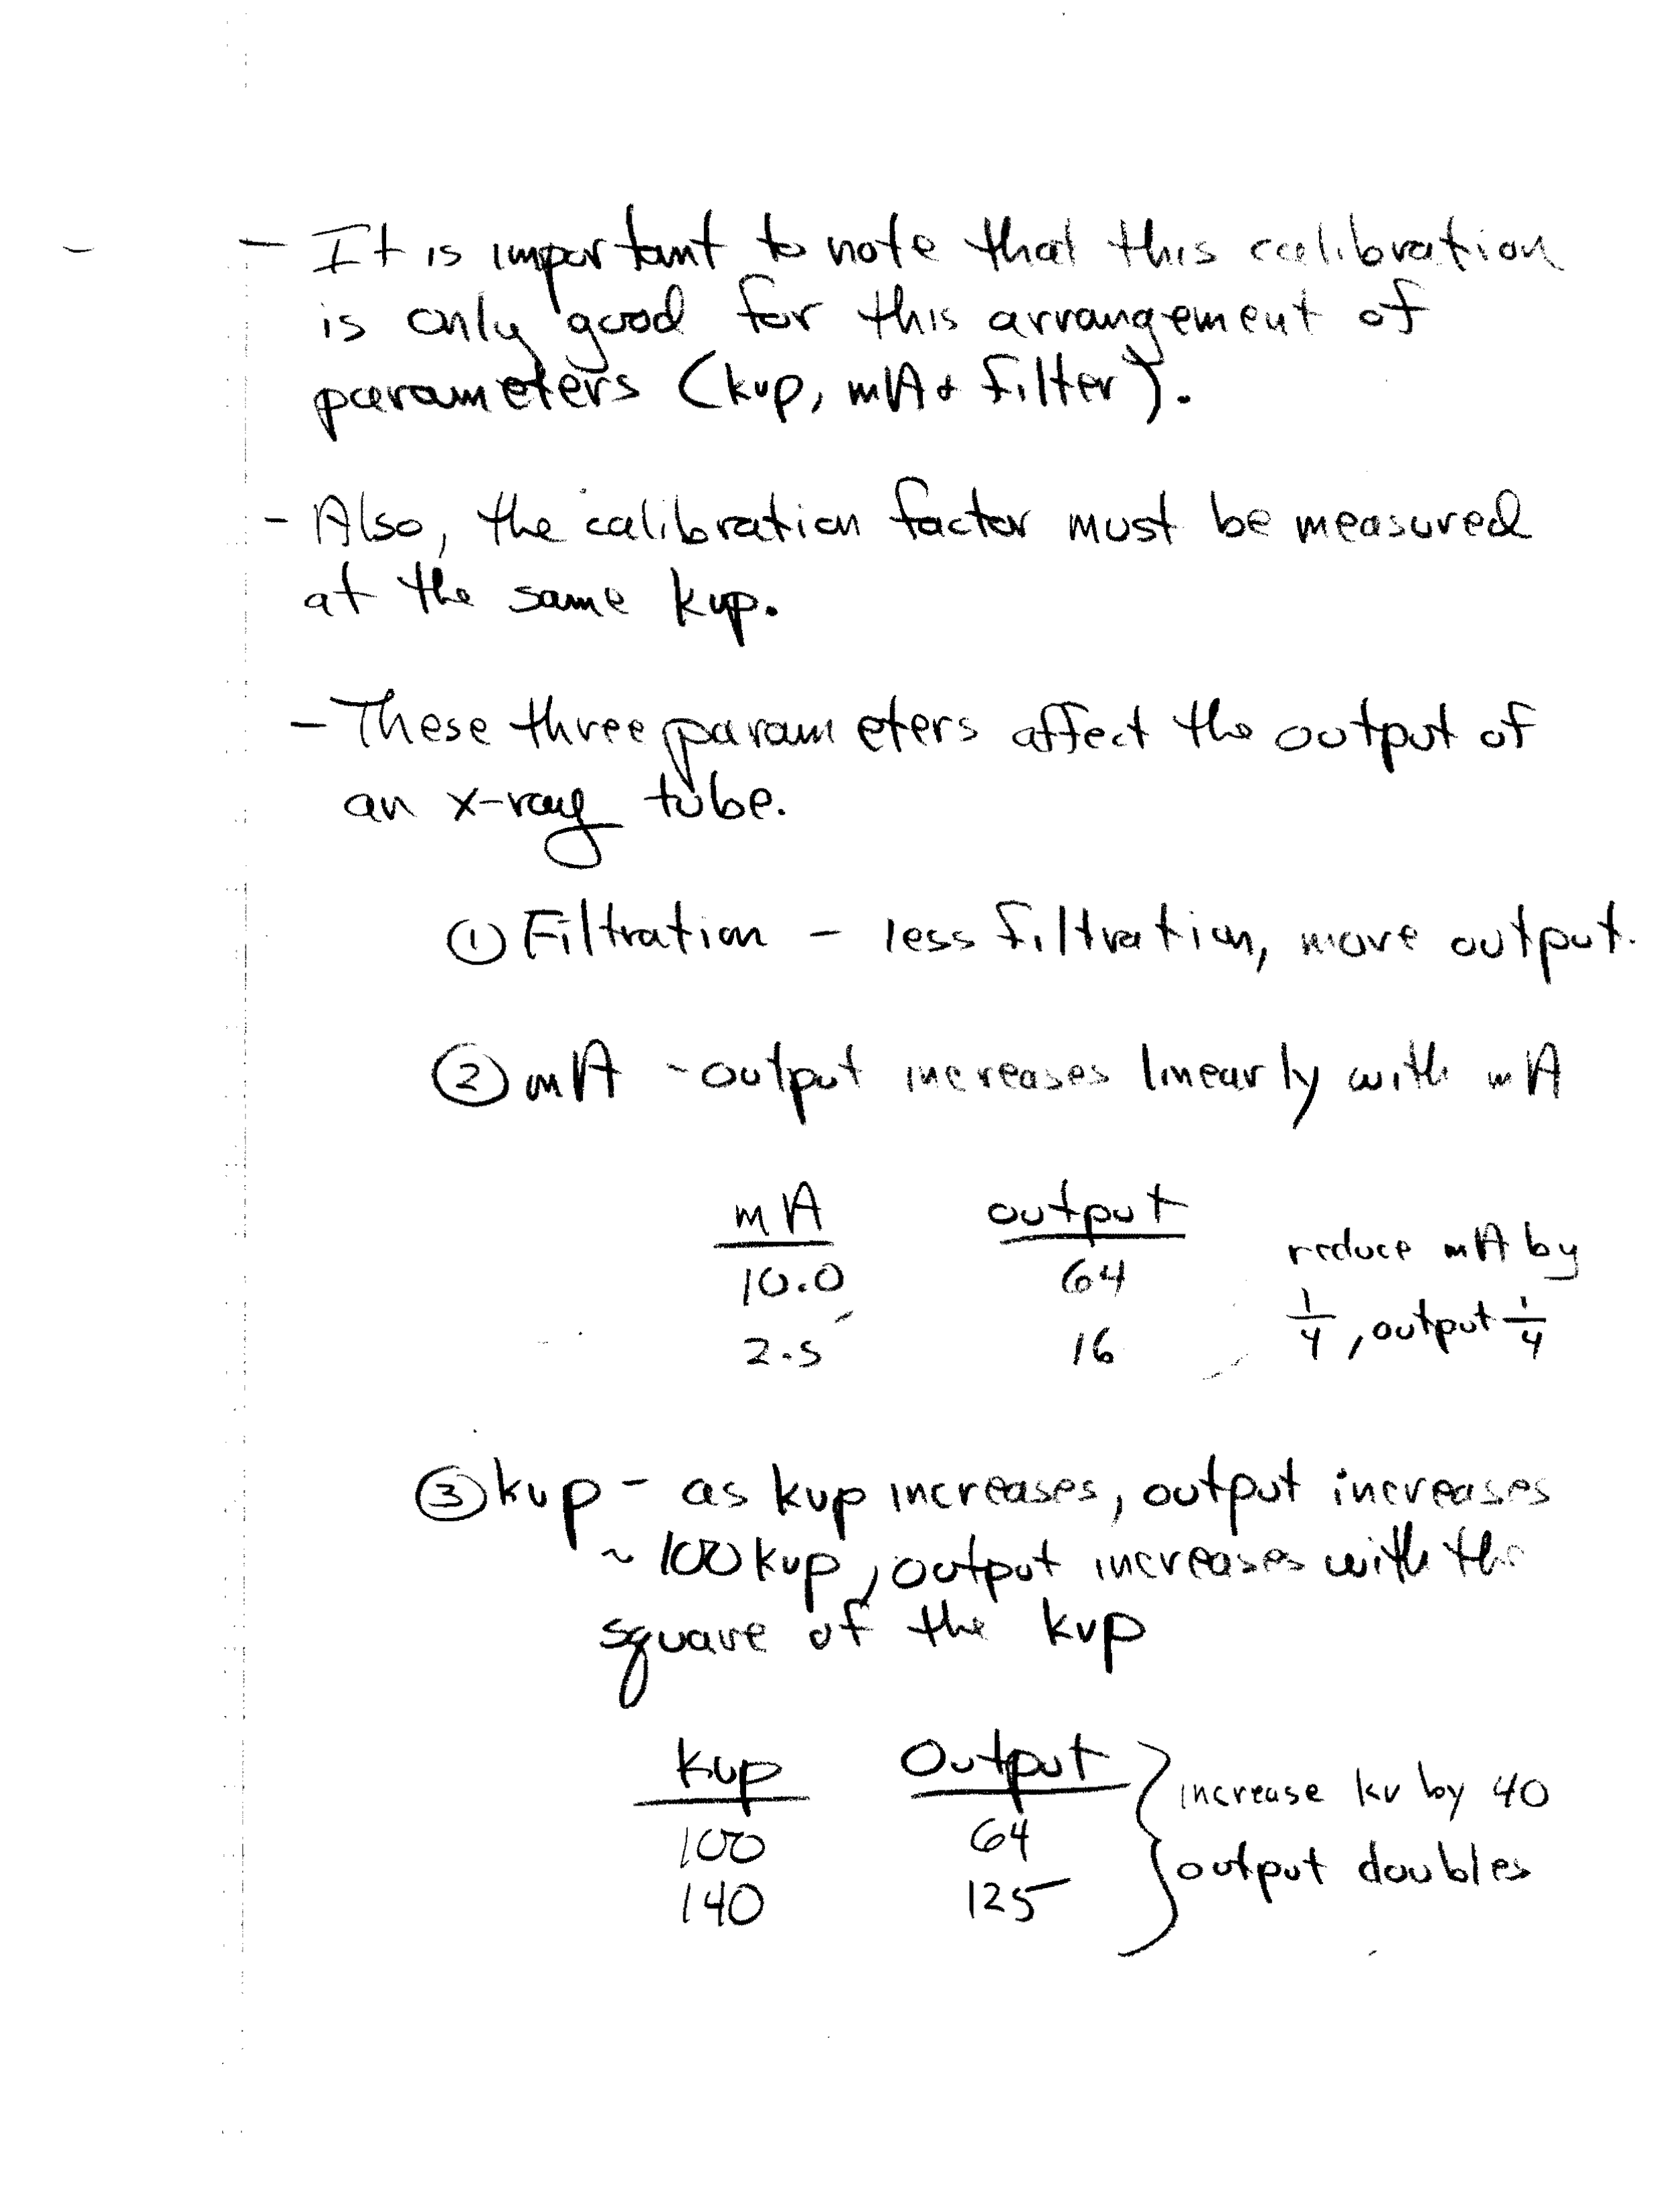 - It is important to note that this calibration
is only good for this arrangement of
parameters (kvp, mA & filter).
- Also, the calibration factor must be measured
at the same kvp.
- These three parameters affect the output of
an x-ray tube.
① Filtration - less filtration, more output.
② mA - output increases linearly with mA
mA output
10.0 64
2.5 16
reduce mA by
1/4, output 1/4
③ kvp - as kvp increases, output increases
~ 100 kvp, output increases with the
square of the kvp
kvp Output
100 64
140 125
increase kv by 40
output doubles